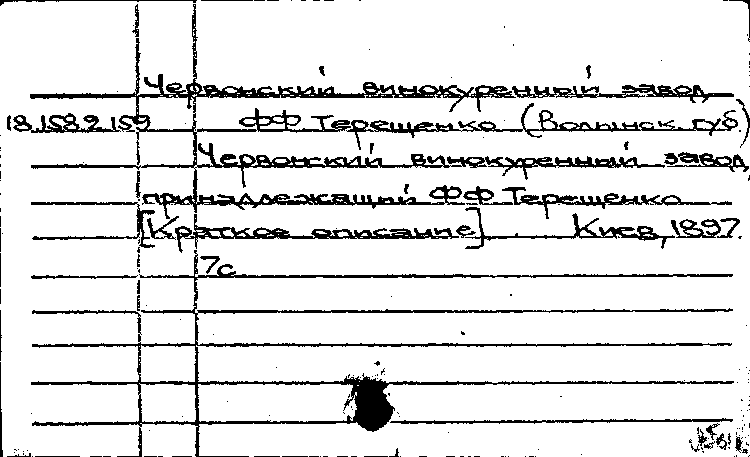 Червонский винокуренный завод
18.158.2.159 Ф.Ф. Терещенко (Волынск. губ.)
Червонский винокуренный завод,
принадлежащий Ф.Ф. Терещенко
[Краткое описание]. Киев, 1897.
7с